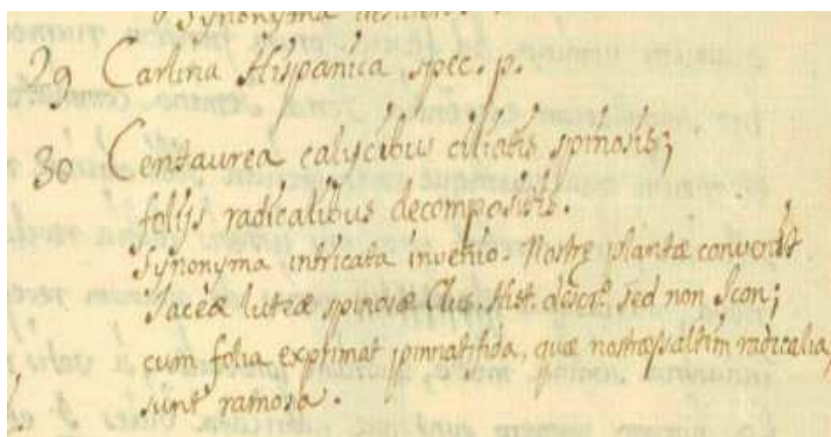 Synonyma
29 Carlina Hispanica spec. p.
30 Centaurea calycibus ciliatis spinosis;
folijs radicalibus decompositis.
Synonyma intricata invenio. Nostrę plantæ convenit
Jaceæ luteæ spinosæ Clus. Hist. descr. sed non Icon;
cum folia exprimat pinnatifida, quæ nostræ saltim radicalia,
sunt ramosa.